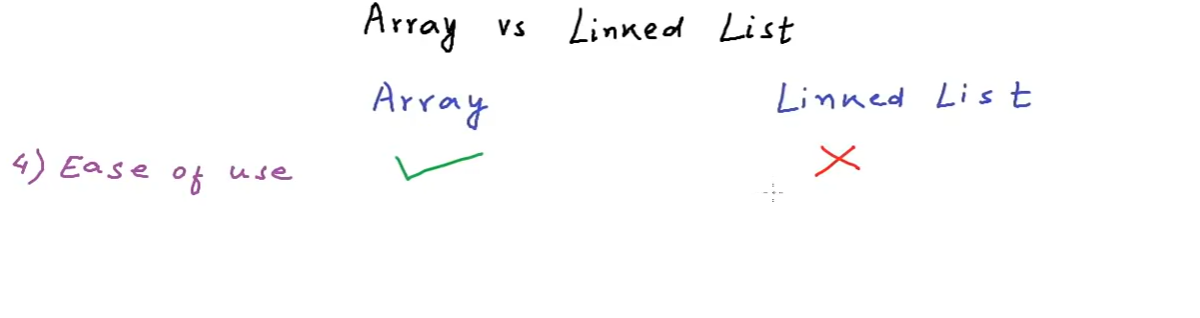 Array vs Linked List
Array Linked List
4) Ease of use ✓ ✗